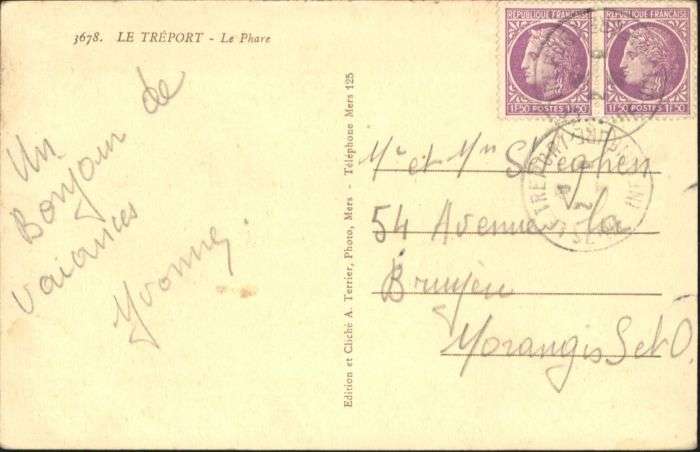 3678. LE TRÉPORT - Le Phare
Un
Bonjour de
vacances
Yvonne.
Edition et Cliché A. Terrier, Photo, Mers - Téléphone Mers 125
RÉPUBLIQUE FRANÇAISE
1F.50 POSTES 1F.50
RÉPUBLIQUE FRANÇAISE
1F.50 POSTES 1F.50
LE TREPORT
SEINE INF
Mr et Mm
54 Avenue la
Bruyère
Morangis S et O.